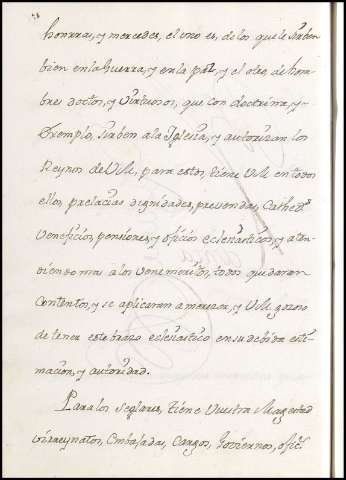 honrras, y mercedes, el vno es, de los que le sirben
bien en la Guerra, y en la paz, y el otro de hom-
bres doctos, y Virtuosos, que con doctrina, y
Exemplo, sirben a la Iglesia, y autorizan los
Reynos de VM, para estos, tiene VM en todos
ellos, prelacias dignidades, prevendas, Cathed.s
veneficios, pensiones, y oficios eclesiasticos, y aten-
diendo mas a los venemeritos, todos quedaran
Contentos, y se aplicaran a merezer, y VM gozoso
de tener este brazo eclesiastico en su debida esti-
macion, y autoridad.
Para los seglares, tiene Vuestra Magestad
virreynatos, Embajadas, Cargos, Goviernos, ofic.s